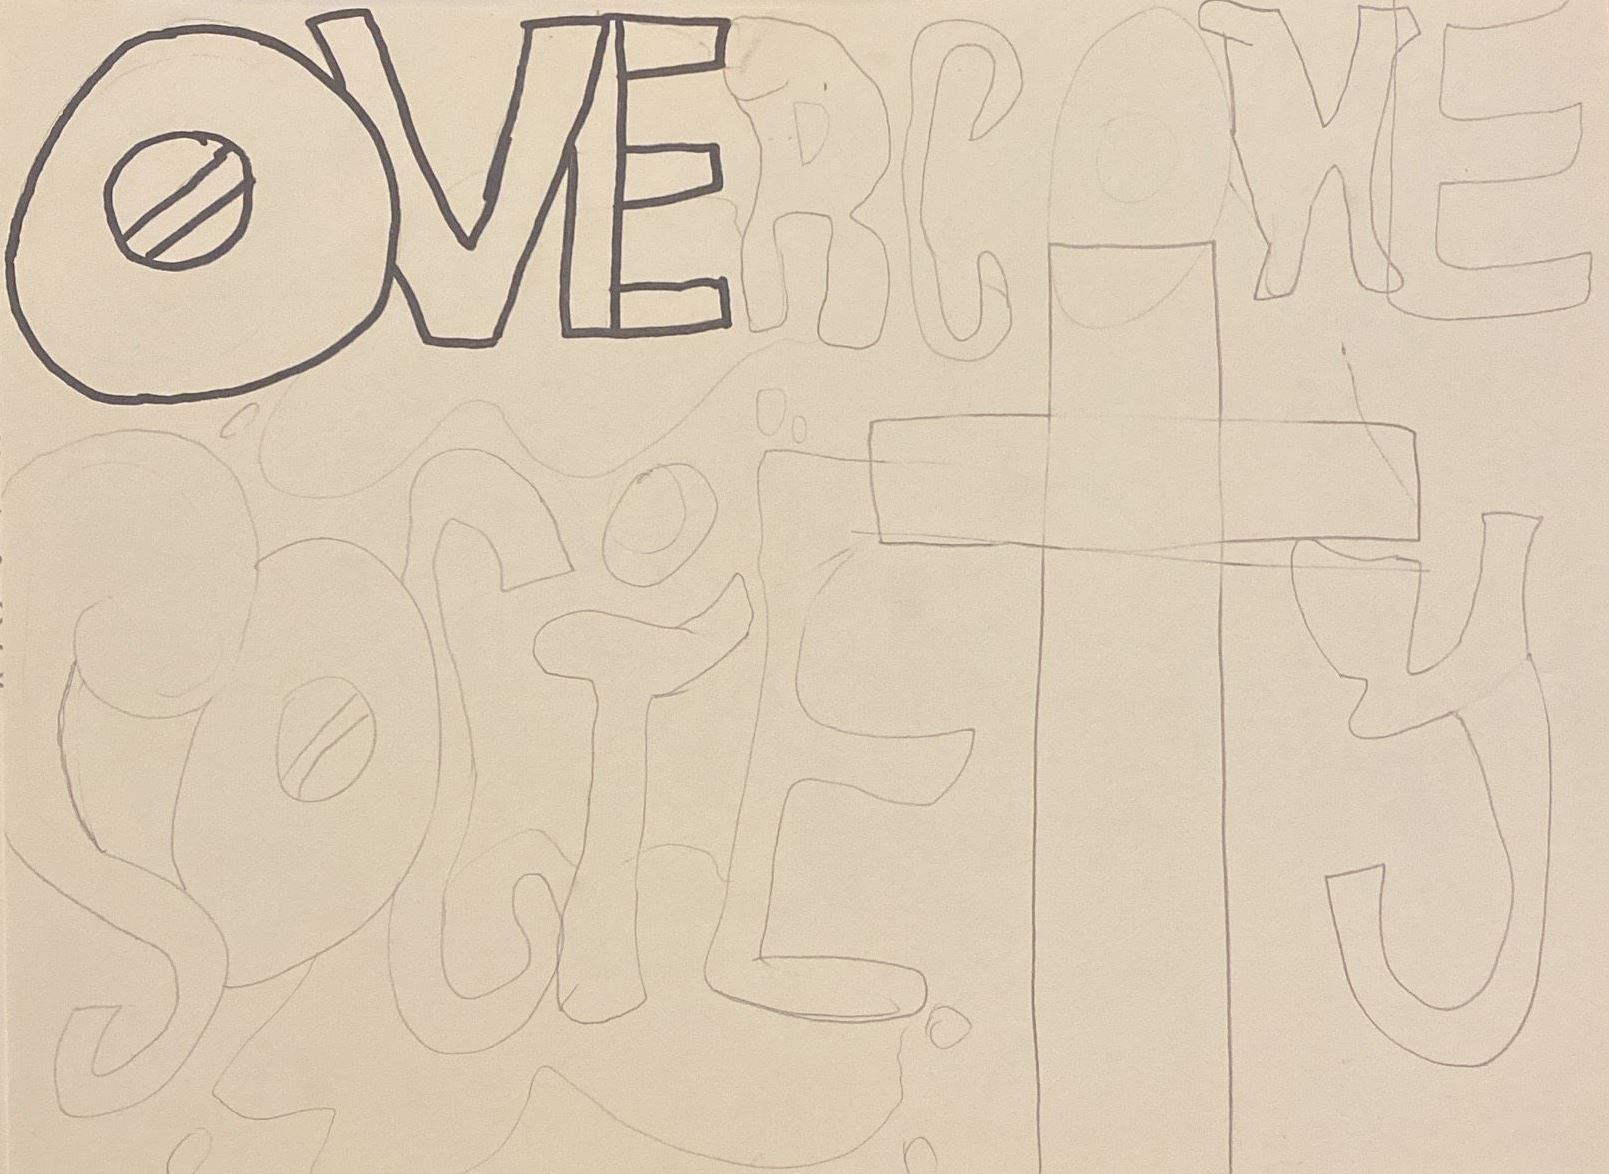 OVERCOME
SOCIETY